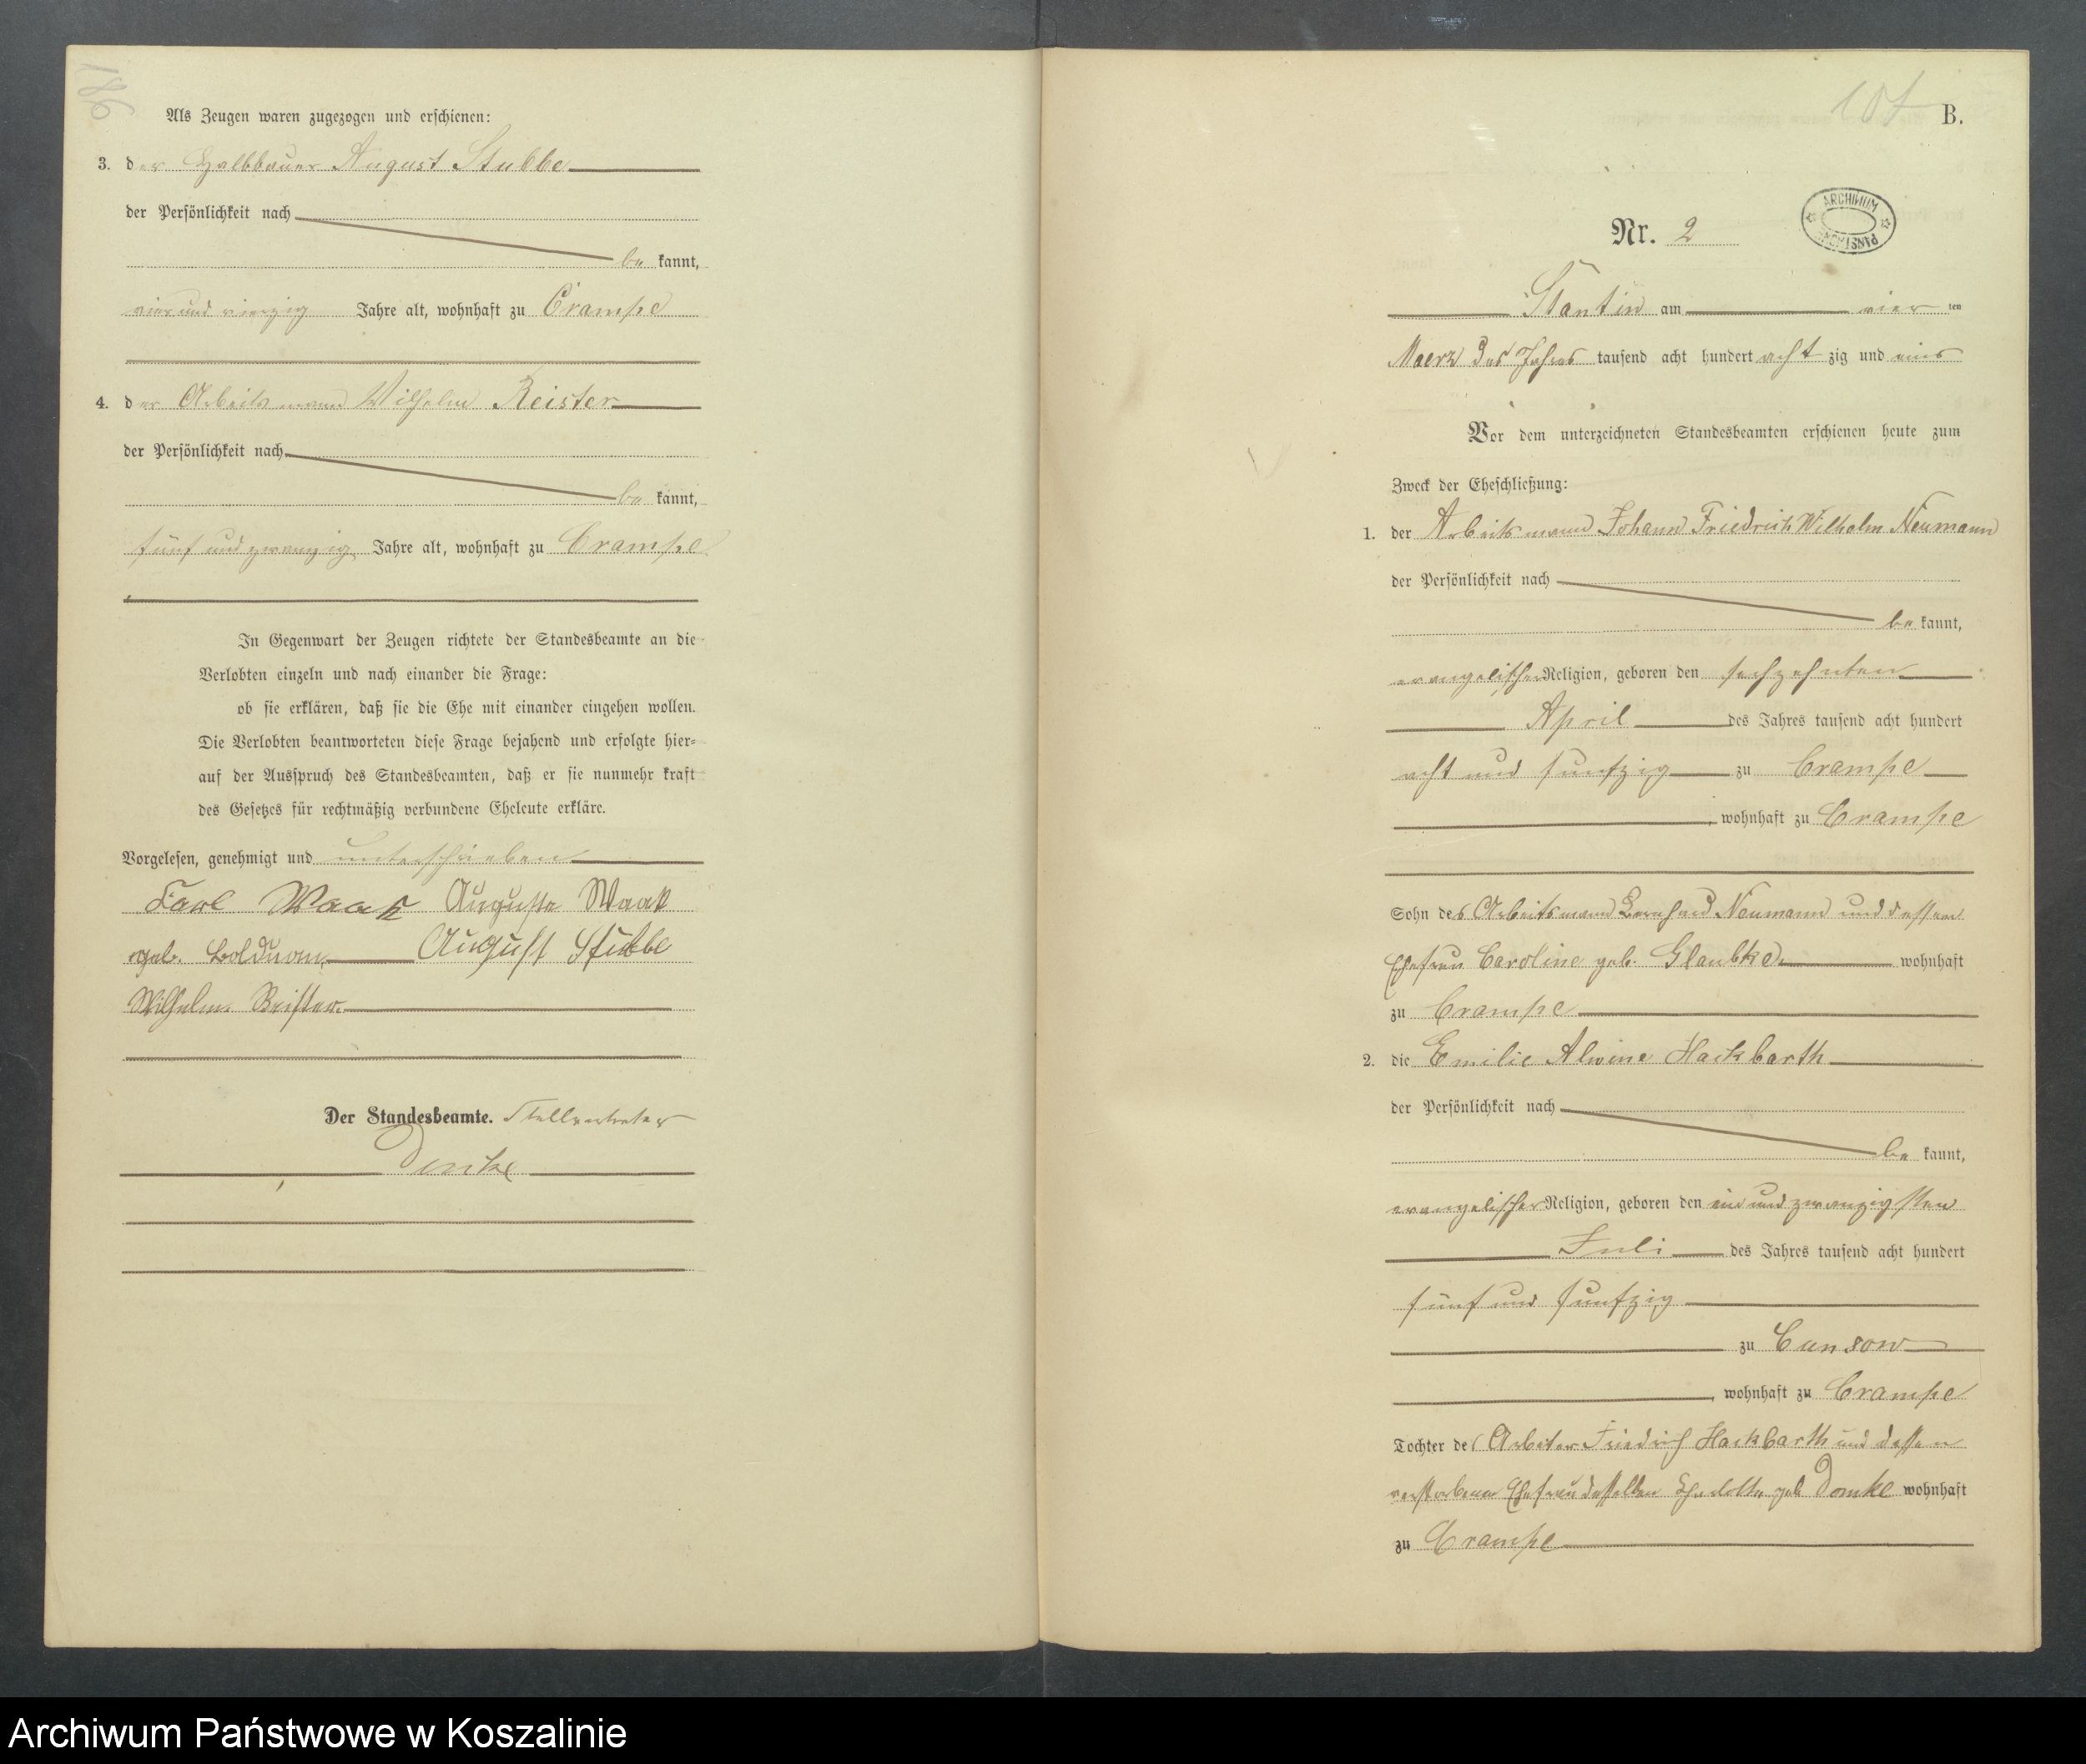 Als Zeugen waren zugezogen und erschienen:
3. der Halbbauer August Stubbe
der Persönlichkeit nach
be kannt,
vier und vierzig Jahre alt, wohnhaft zu Crampe
4. der Arbeitsmann Wilhelm Reister
der Persönlichkeit nach
be kannt,
fünf und zwanzig Jahre alt, wohnhaft zu Crampe
In Gegenwart der Zeugen richtete der Standesbeamte an die
Verlobten einzeln und nach einander die Frage:
ob sie erklären, daß sie die Ehe mit einander eingehen wollen.
Die Verlobten beantworteten diese Frage bejahend und erfolgte hier-
auf der Ausspruch des Standesbeamten, daß er sie nunmehr kraft
des Gesetzes für rechtmäßig verbundene Eheleute erkläre.
Vorgelesen, genehmigt und unterschrieben
Karl Waak Auguste Waak
geb. Bolduan August Stubbe
Wilhelm Reister
Der Standesbeamte. Stellvertreter
B.
ARCHIWUM PAŃSTWOWE
Nr. 2
Stantin am vier ten
Maerz des Jahres tausend acht hundert acht zig und eins
Vor dem unterzeichneten Standesbeamten erschienen heute zum
Zweck der Eheschließung:
1. der Arbeitsmann Johann Friedrich Wilhelm Neumann
der Persönlichkeit nach
be kannt,
evangelischer Religion, geboren den sechzehnten
April des Jahres tausend acht hundert
acht und funfzig zu Crampe
, wohnhaft zu Crampe
Sohn des Arbeitsmann Bernhard Neumann und dessen
Ehefrau Caroline geb. Glaubke wohnhaft
zu Crampe
2. die Emilie Alwine Hackbarth
der Persönlichkeit nach
be kannt,
evangelischer Religion, geboren den ein und zwanzigsten
Juli des Jahres tausend acht hundert
fünf und funfzig
zu Cunsow
, wohnhaft zu Crampe
Tochter des Arbeiter Friedrich Hackbarth und dessen
verstorbenen Ehefrau desselben geb Domke wohnhaft
zu Crampe
Archiwum Państwowe w Koszalinie